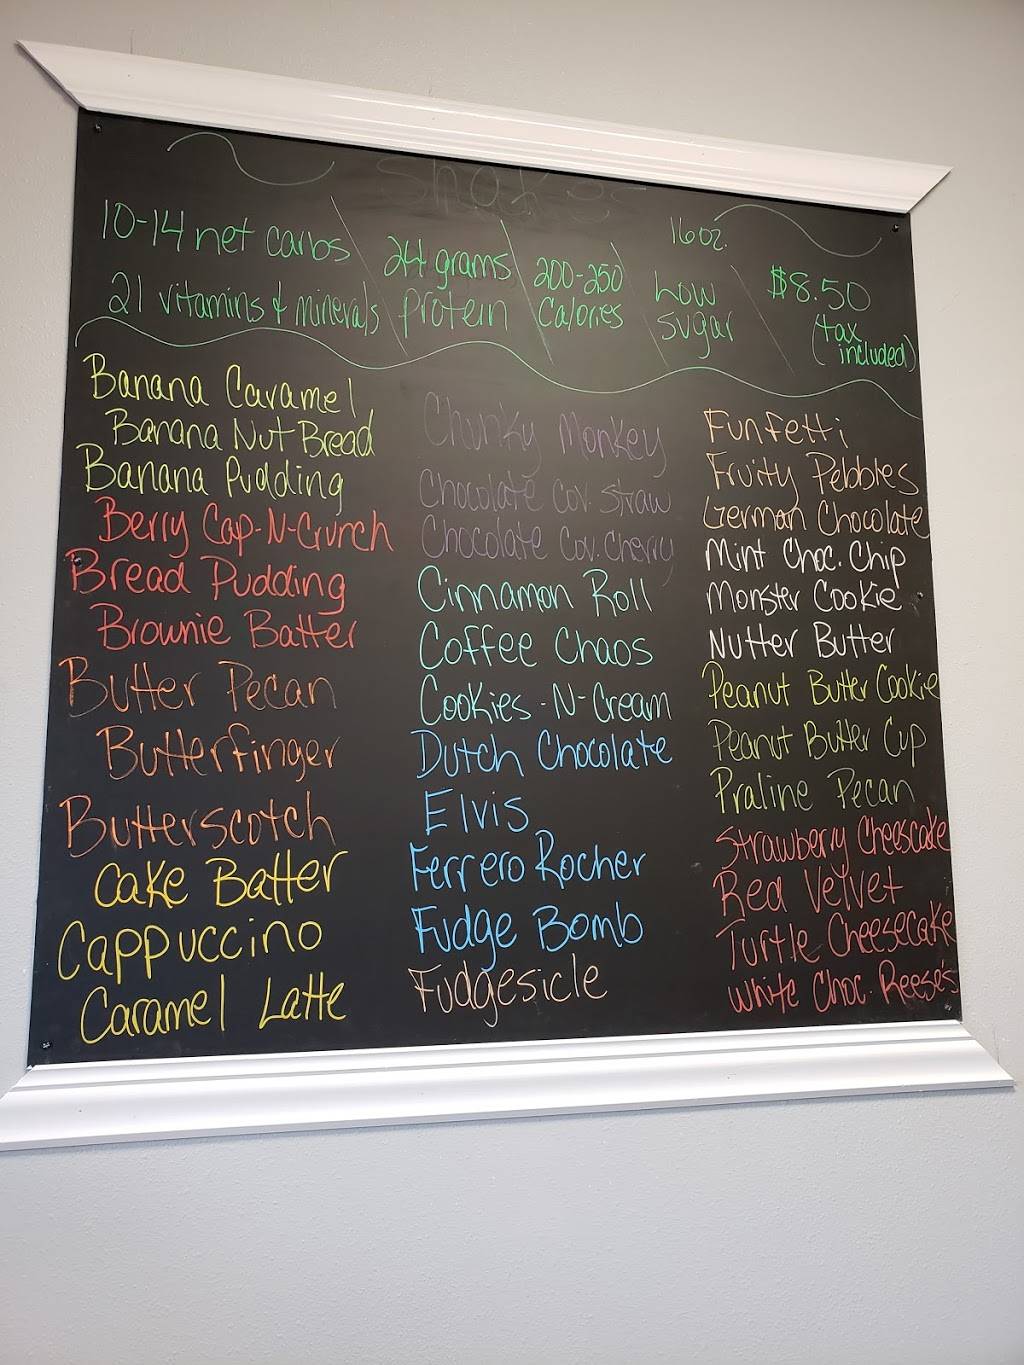 Shakes
16 oz.
10-14 net carbs
21 vitamins & minerals
24 grams
protein
200-250
Calories
Low
Sugar
$8.50
(tax
included)
Banana Caramel
Banana Nut Bread
Banana Pudding
Berry Cap-N-Crunch
Bread Pudding
Brownie Batter
Butter Pecan
Butterfinger
Butterscotch
Cake Batter
Cappuccino
Caramel Latte
Chunky Monkey
Chocolate Cov. Straw
Chocolate Cov. Cherry
Cinnamon Roll
Coffee Chaos
Cookies-N-Cream
Dutch Chocolate
Elvis
Ferrero Rocher
Fudge Bomb
Fudgesicle
Funfetti
Fruity Pebbles
German Chocolate
Mint Choc. Chip
Monster Cookie
Nutter Butter
Peanut Butter Cookie
Peanut Butter Cup
Praline Pecan
Strawberry Cheescake
Red Velvet
Turtle Cheesecake
White Choc. Reese's